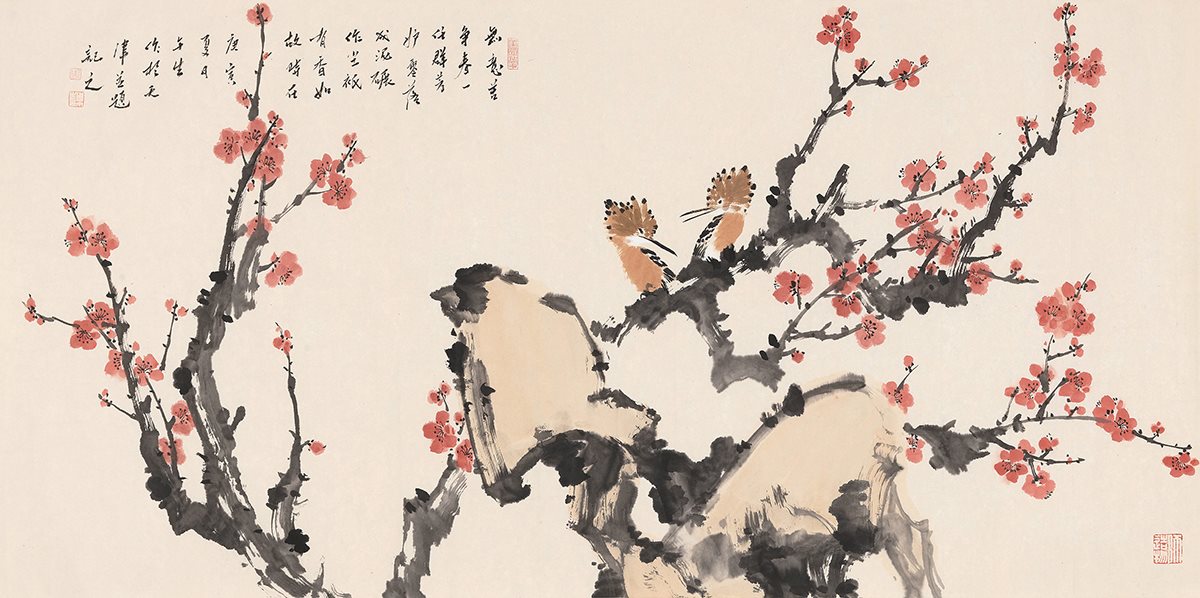 無意苦
爭春一
任群芳
妒零落
成泥碾
作塵祇
有香如
故時在
庚寅
夏月
生
作於天
津並題
記之